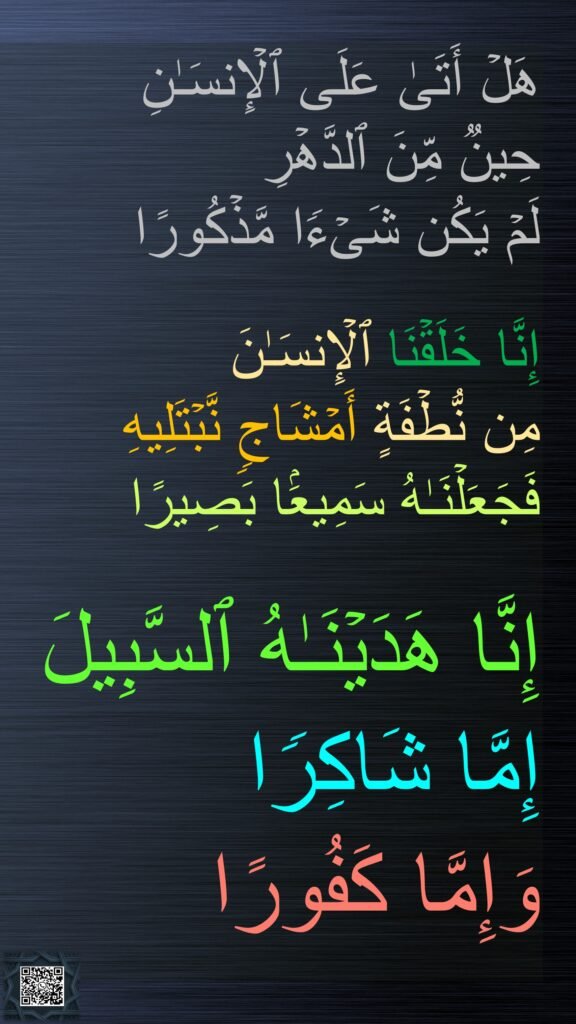 هَلۡ أَتَىٰ عَلَى ٱلۡإِنسَـٰنِ
حِينࣱ مِّنَ ٱلدَّهۡرِ
لَمۡ يَكُن شَیۡءࣰا مَّذۡكُورًا
إِنَّا خَلَقۡنَا ٱلۡإِنسَـٰنَ
مِن نُّطۡفَةٍ أَمۡشَاجࣲ نَّبۡتَلِيهِ
فَجَعَلۡنَـٰهُ سَمِيعَۢا بَصِيرًا
إِنَّا هَدَيۡنَـٰهُ ٱلسَّبِيلَ
إِمَّا شَاكِرࣰا
وَإِمَّا كَفُورًا